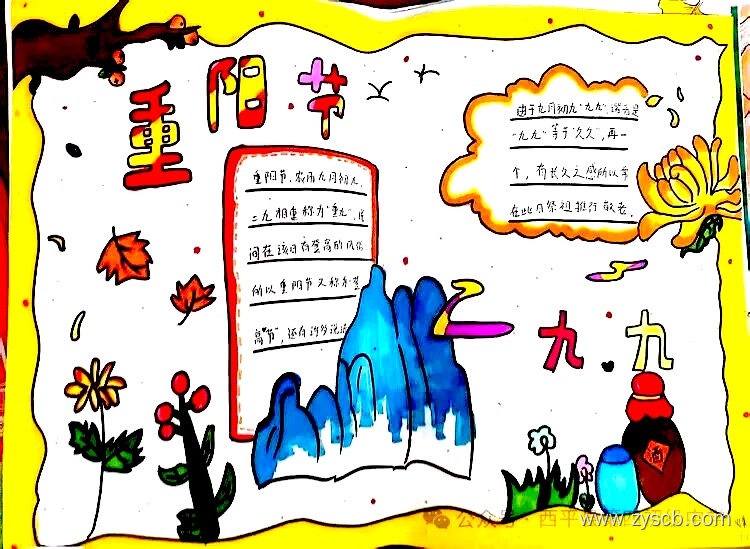 重阳节
重阳节,农历九月初九,
二九相重称为"重九",民
间在该日有登高的风俗
所以重阳节又称为"登
高节",还有许多说法
由于九月初九"九九",谐音是
"九九"等于"久久",再一
个,有长久之感所以常
在此日祭祖推行敬老,
九.九
酒
公众号·西平
www.zyscb.com